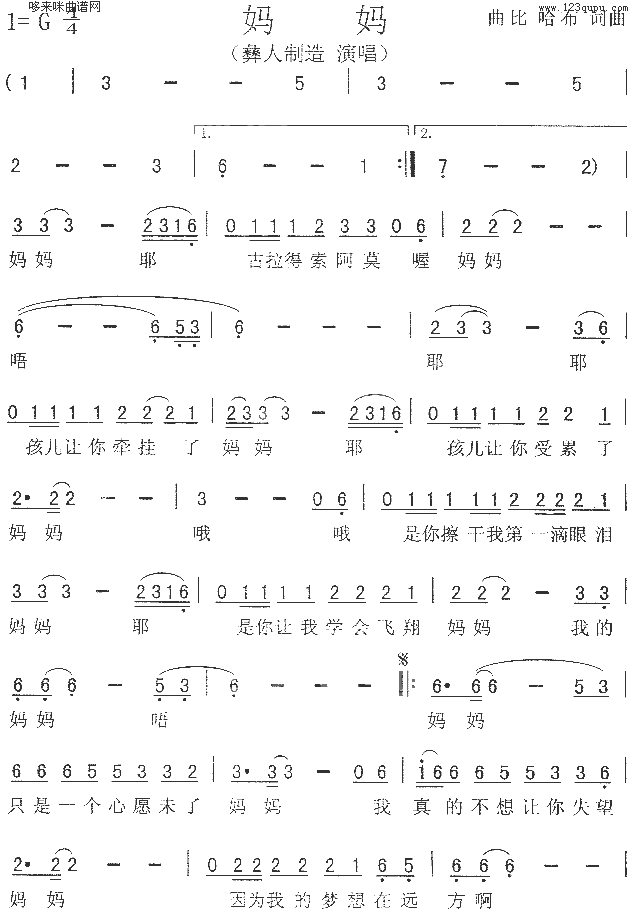 哆来咪曲谱网
www.123qupu.com
1= G 4/4
妈 妈
曲比 哈布 词曲
（彝人制造 演唱）
(1 | 3 - - 5 | 3 - - 5
1. 2.
2 - - 3 | 6 - - 1 :‖ 7 - - 2)
3 3 3 - 2316 | 0 11 1 2 3 3 0 6 | 2 2 2 -
妈妈 耶 古拉得索阿莫 喔 妈妈
6 - - 6 53 | 6 - - - | 2 3 3 - 3 6
唔 耶 耶
0 11 1 1 2 2 2 1 | 23 3 3 - 2316 | 0 11 1 1 2 2 1
孩儿让你牵挂 了 妈妈 耶 孩儿让你受累了
2· 2 2 - - | 3 - - 0 6 | 0 11 11 2 22 2 1
妈妈 哦 哦 是你擦干我第一滴眼泪
3 3 3 - 2316 | 0 11 1 1 2 2 2 1 | 2 2 2 - 3 3
妈妈 耶 是你让我学会飞翔 妈妈 我的
6 6 6 - 5 3 | 6 - - - ‖: 6· 6 6 - 5 3
妈妈 唔 妈妈
6 6 6 5 5 3 3 2 | 3· 3 3 - 0 6 | 16 6 6 5 5 3 3 6
只是一个心愿未了 妈妈 我 真的不想让你失望
2· 2 2 - - | 0 22 2 2 2 1 6 5 | 6 6 6 - -
妈妈 因为我的梦想在远 方啊